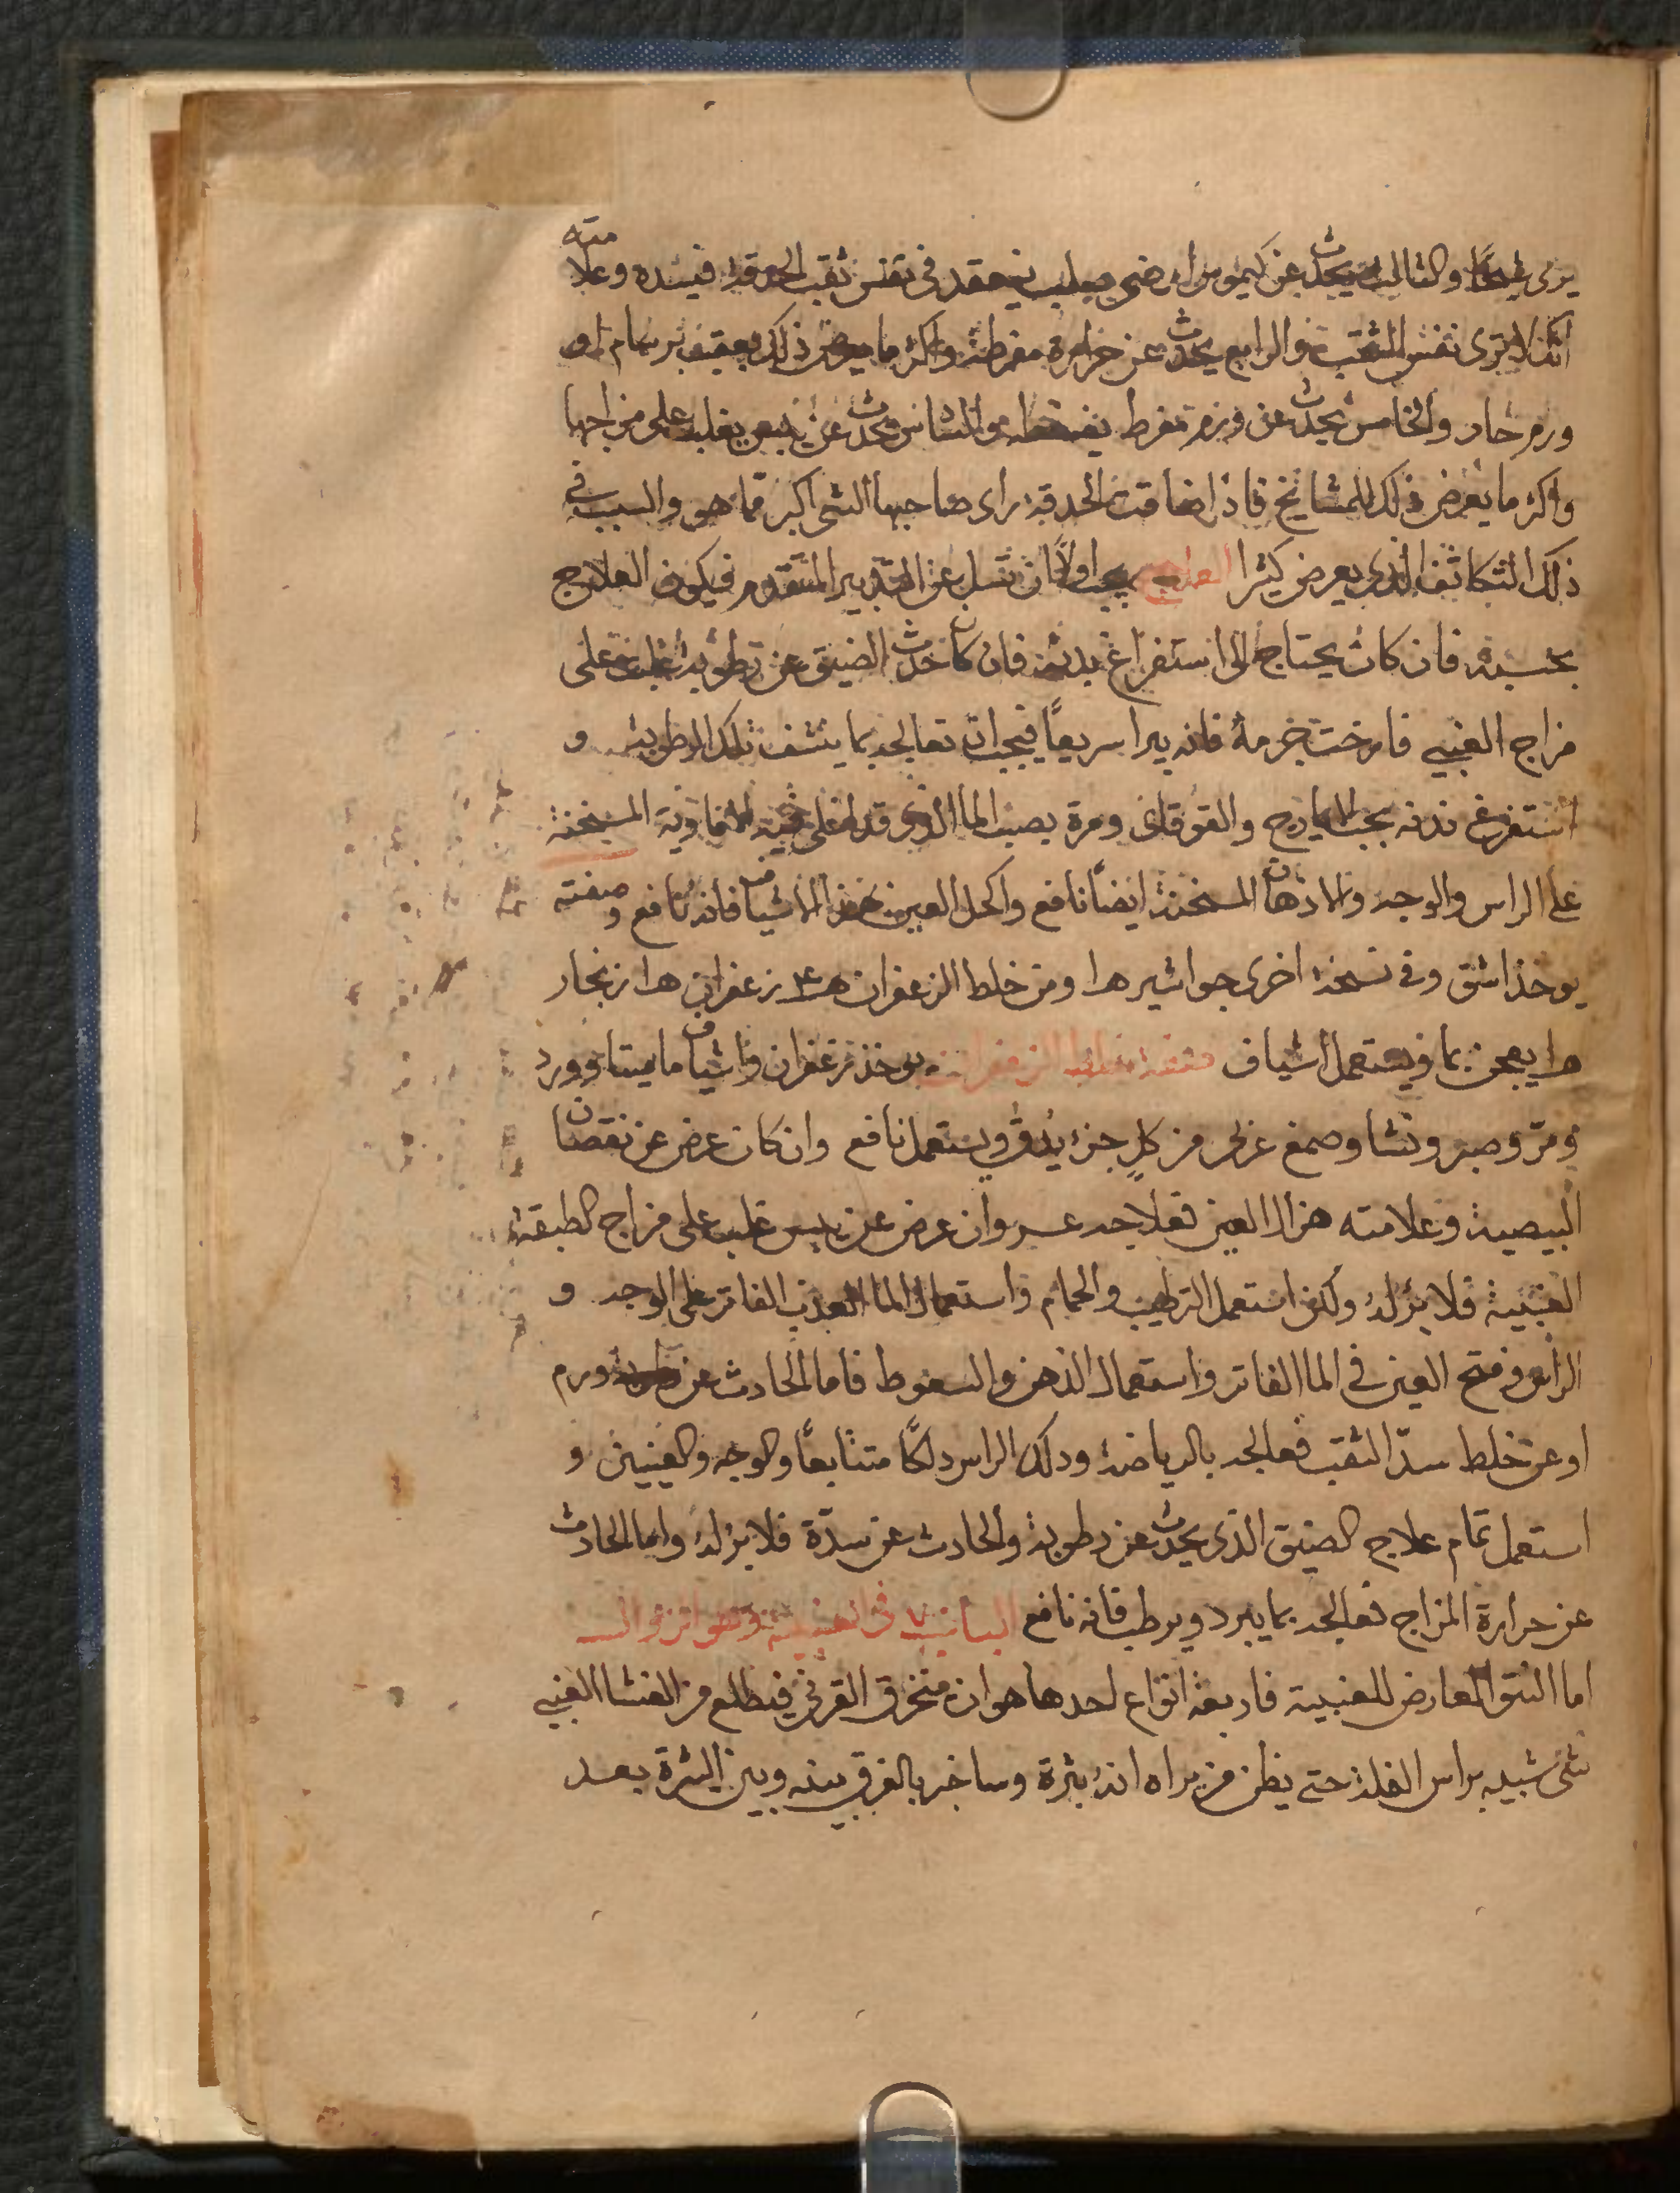 يرى شيئا والثالث يحدث عن كيموس ارضي صلب ينعقد في نفس ثقب الحدقة فيسده وعلامته
انك لا ترى نفس الثقب والرابع يحدث عن حرارة مفرطة واكثر ما يعرض ذلك بعقيب برسام او
ورم حار والخامس يحدث عن ورم مفرط يضغطه والسادس يحدث عن يبس يغلب على مزاجها
واكثر ما يعرض ذلك للمشايخ فاذا ضاقت الحدقة راى صاحبها الشي اكبر مما هو والسبب في
ذلك التكاثف الذي يعرض كثيرا العلاج يجب اولا ان تسل عن التدبير المتقدم فيكون العلاج
بحسبه فان كان يحتاج الى استفراغ بدنه فان كان حدث الضيق عن رطوبة غلبت على
مزاج العنبي فارخت جرمه فانه يبرا سريعا فيجب ان تعالجه بما ينشف تلك الرطوبة و
استفرغ بدنه بحب الايارج والقوقاى ومرة بصب الما الذي قد اغلي فيه الافاوية المسخنة
على الراس والوجه والادهان المسخنة ايضا نافع واكحل العين بهذا الاشياف فانه نافع وصفته
يوخذ اشق وفي نسخة اخرى جواشير ومن خلط الزعفران زعفران زنجار
يعجن بما ويستعمل اشياف صفة خلط الزعفران يوخذ زعفران واشياف ماميثا وورد
ومر وصبر ونشا وصمغ عربي من كل جزء يدق ويستعمل نافع وان كان عرض عن نقصان
البيضية وعلامته هزال العين فعلاجه عسر وان عرض عن يبس غلب على مزاج الطبقة
العنبية فلا برء له ولكن استعمل الترطيب والحمام واستعمال الما العذب الفاتر على الوجه و
الراس وفتح العين في الما الفاتر واستعمال الدهن والسعوط فاما الحادث عن ورم
او عن خلط سد الثقب فعالجه بالرياضة ودلك الراس دلكا متتابعا والوجه والعينين و
استعمل تمام علاج الضيق الذي يحدث عن رطوبة والحادث عن سدة فلا برء له واما الحادث
عن حرارة المزاج فعالجه بما يبرد ويرطب فانه نافع
اما النتو العارض للعنبية فاربعة انواع احدها هو ان ينخرق القرني فيطلع من الغشا العنبي
شي شبيه براس النملة حتى يظن من يراه انه بثرة وساخبر بالفرق بينه وبين البثرة بعد